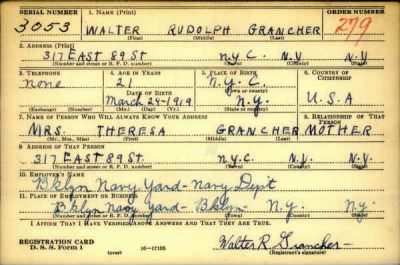 SERIAL NUMBER 1. NAME (Print) ORDER NUMBER
3053 WALTER RUDOLPH GRANCHER 279
(First) (Middle) (Last)
2. ADDRESS (Print)
317 EAST 89 ST N.Y.C. N.Y N.Y
(Number and street or R. F. D. number) (Town) (County) (State)
3. TELEPHONE 4. AGE IN YEARS 5. PLACE OF BIRTH 6. COUNTRY OF CITIZENSHIP
none 21 N.Y.C.
DATE OF BIRTH (Town or county)
March-24-1919 N.Y. U.S.A
(Exchange) (Number) (Mo.) (Day) (Yr.) (State or country)
7. NAME OF PERSON WHO WILL ALWAYS KNOW YOUR ADDRESS 8. RELATIONSHIP OF THAT PERSON
MRS. THERESA GRANCHER MOTHER
(Mr., Mrs., Miss) (First) (Middle) (Last)
9. ADDRESS OF THAT PERSON
317 EAST 89 St. N.Y.C. N.Y. N.Y.
(Number and street or R. F. D. number) (Town) (County) (State)
10. EMPLOYER'S NAME
Bklyn Navy Yard-Navy Dept
11. PLACE OF EMPLOYMENT OR BUSINESS
Bklyn Navy Yard- Bklyn- N.Y. N.Y.
(Number and street or R. F. D. number) (Town) (County) (State)
I AFFIRM THAT I HAVE VERIFIED ABOVE ANSWERS AND THAT THEY ARE TRUE.
REGISTRATION CARD
D. S. S. Form 1 (over) 16-17105 Walter R. Grancher
(Registrant's signature)